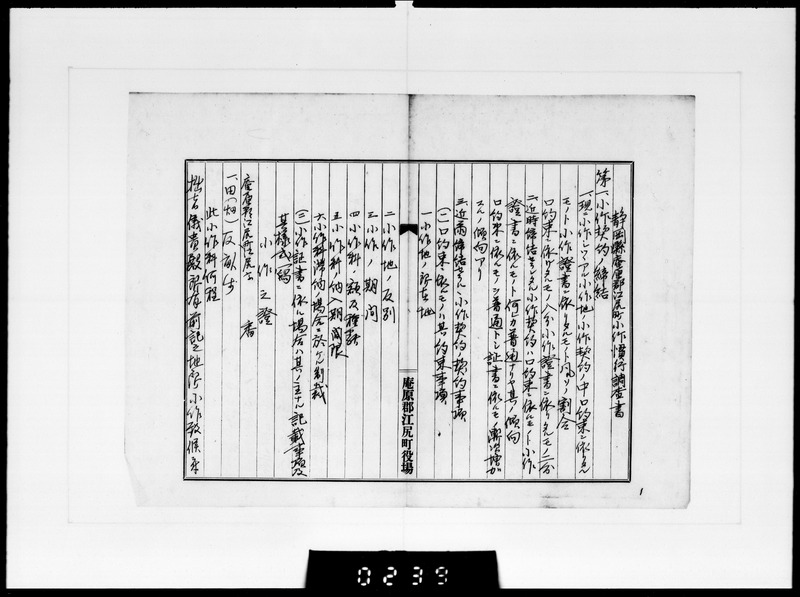 静岡縣庵原郡江尻町小作慣行調査書
第一、小作契約ノ締結
一、現ニ小作シツヽアル小作地ノ小作契約中口約束ニ依リタル
モノト小作證書ニ依リタルモノトノ割合
口約束ニ依リタルモノ八分小作證書ニ依リタルモノ二分
二、近時締結セラレタル小作契約ハ口約束ニ依ルモノト小作
證書ニ依ルモノト何レカ普通ナリヤ其ノ傾向
口約束ニ依ルモノヲ普通トシ証書ニ依ルモノ漸次増加
スルノ傾向アリ
三、近時締結セラルヽ小作契約ノ契約事項
(一)口約束ニ依ルモノハ其ノ約束事項
一 小作地ノ所在地
二 小作地ノ反別
三 小作ノ期間
四 小作料ノ額及種類
五 小作料納入期限
六 小作料滞納ノ場合ニ於ケル制裁
(二)小作証書ニ依ル場合ハ其ノ主ナル記載事項及
其様式寫
小作之證
庵原郡江尻町江尻
一、田(畑) 反畝歩
此小作料何程
拙者儀貴殿所有前記之地所小作致候
庵原郡江尻町役場
1
0239